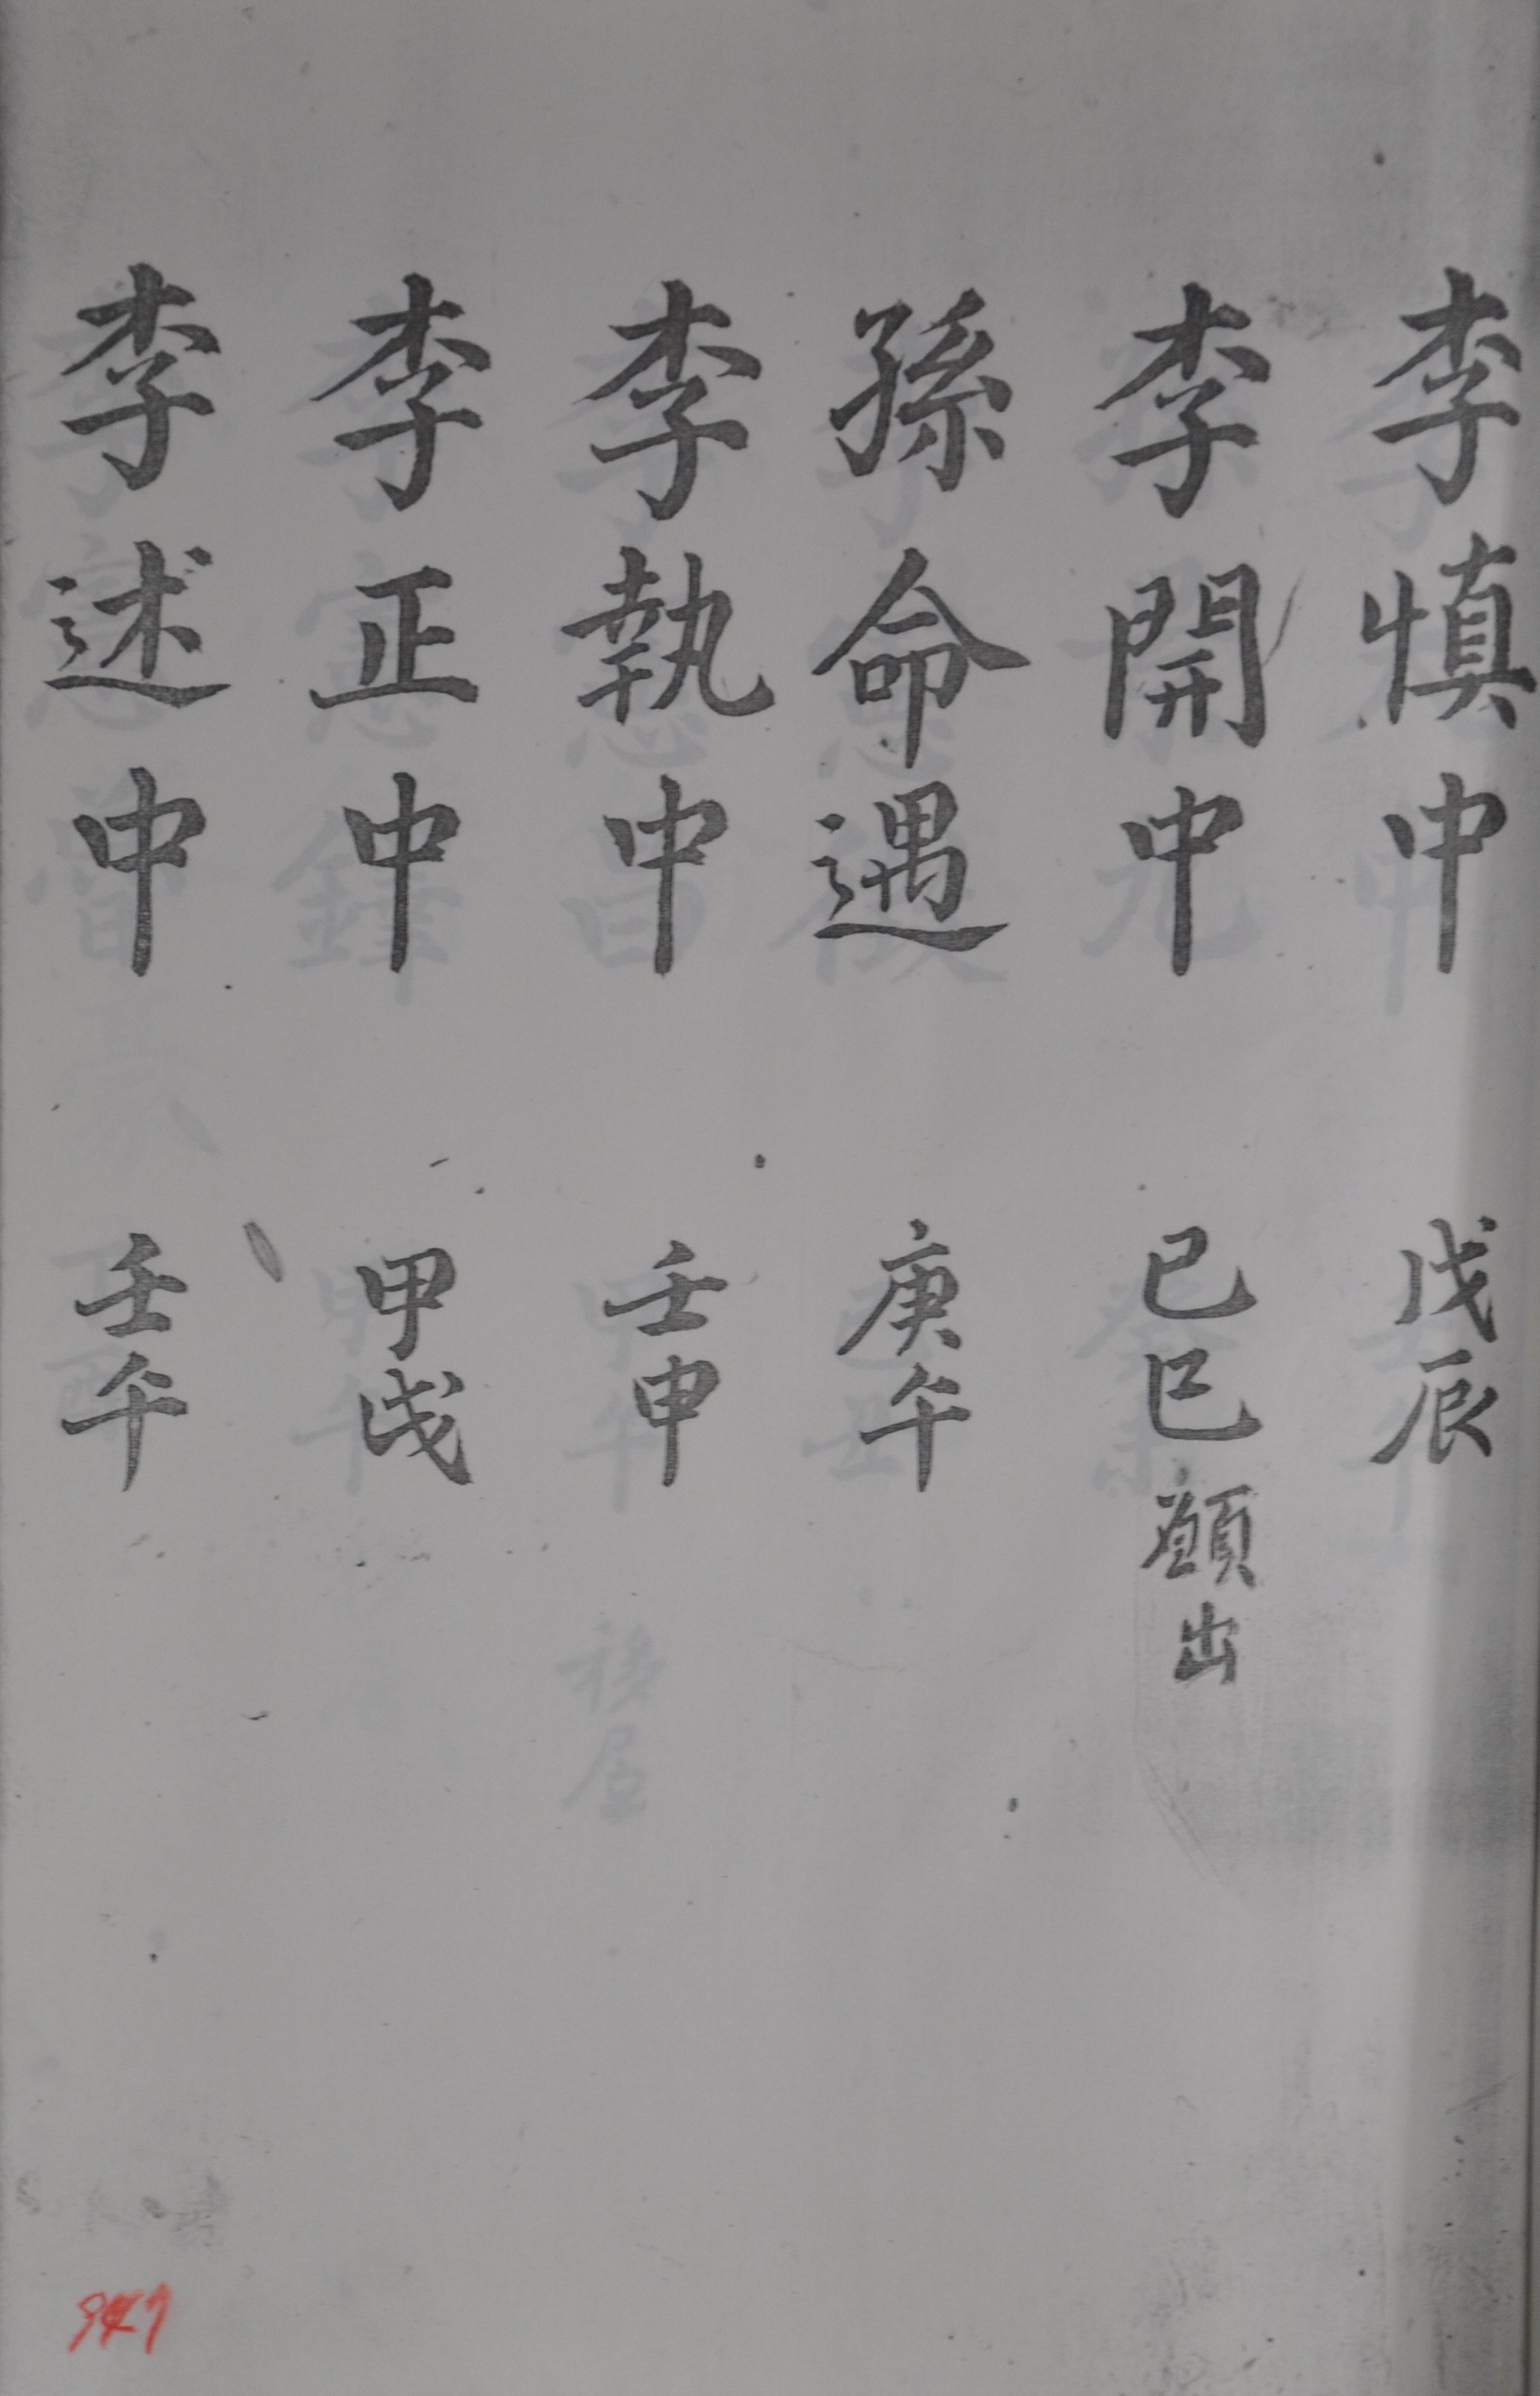 李慎中 戊辰
李開中 己巳 願出
孫命遇 庚午
李執中 壬申
李正中 甲戌
李述中 壬午